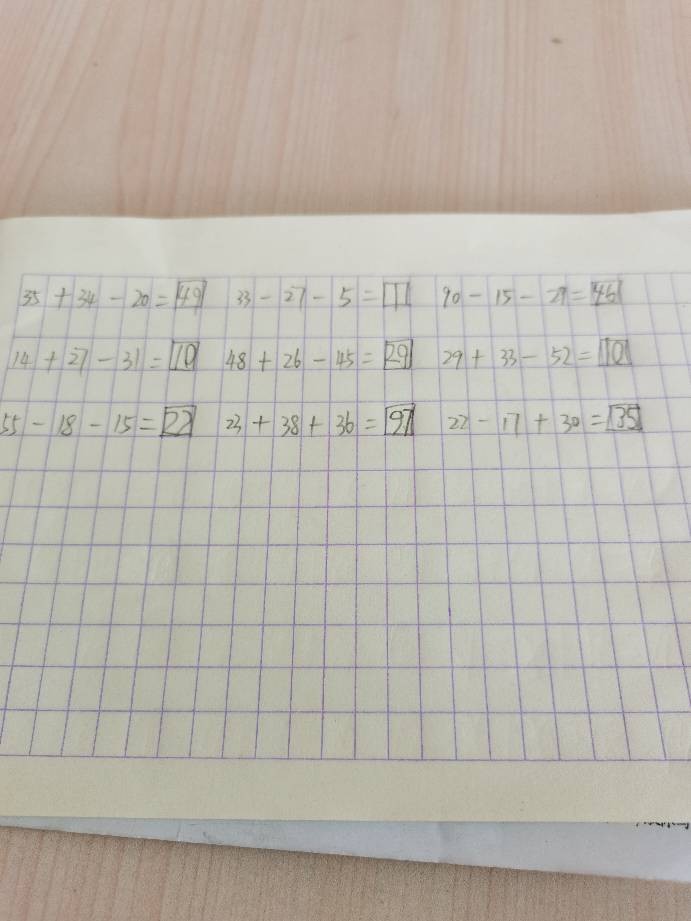 35 + 34 - 20 = 49 33 - 27 - 5 = 1 90 - 15 - 29 = 46
14 + 27 - 31 = 10 48 + 26 - 45 = 29 29 + 33 - 52 = 10
55 - 18 - 15 = 22 23 + 38 + 36 = 97 22 - 17 + 30 = 35